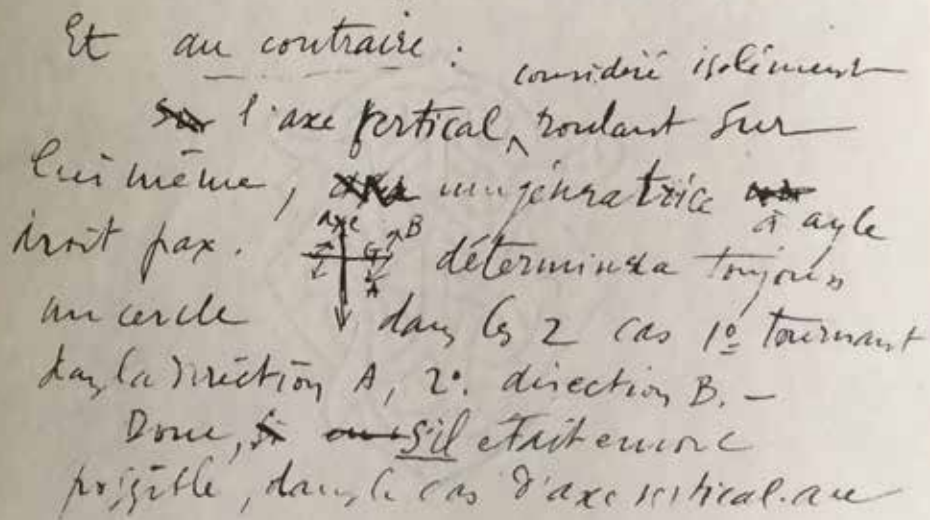 Et au contraire :
considéré isolément
l'axe vertical, roulant sur
lui même, une génératrice à angle
droit par ex. axe G B A déterminera toujours
un cercle dans les 2 cas 1º tournant
dans la direction A, 2º. direction B. —
Donc, s'il était encore
possible, dans le cas d'axe vertical au